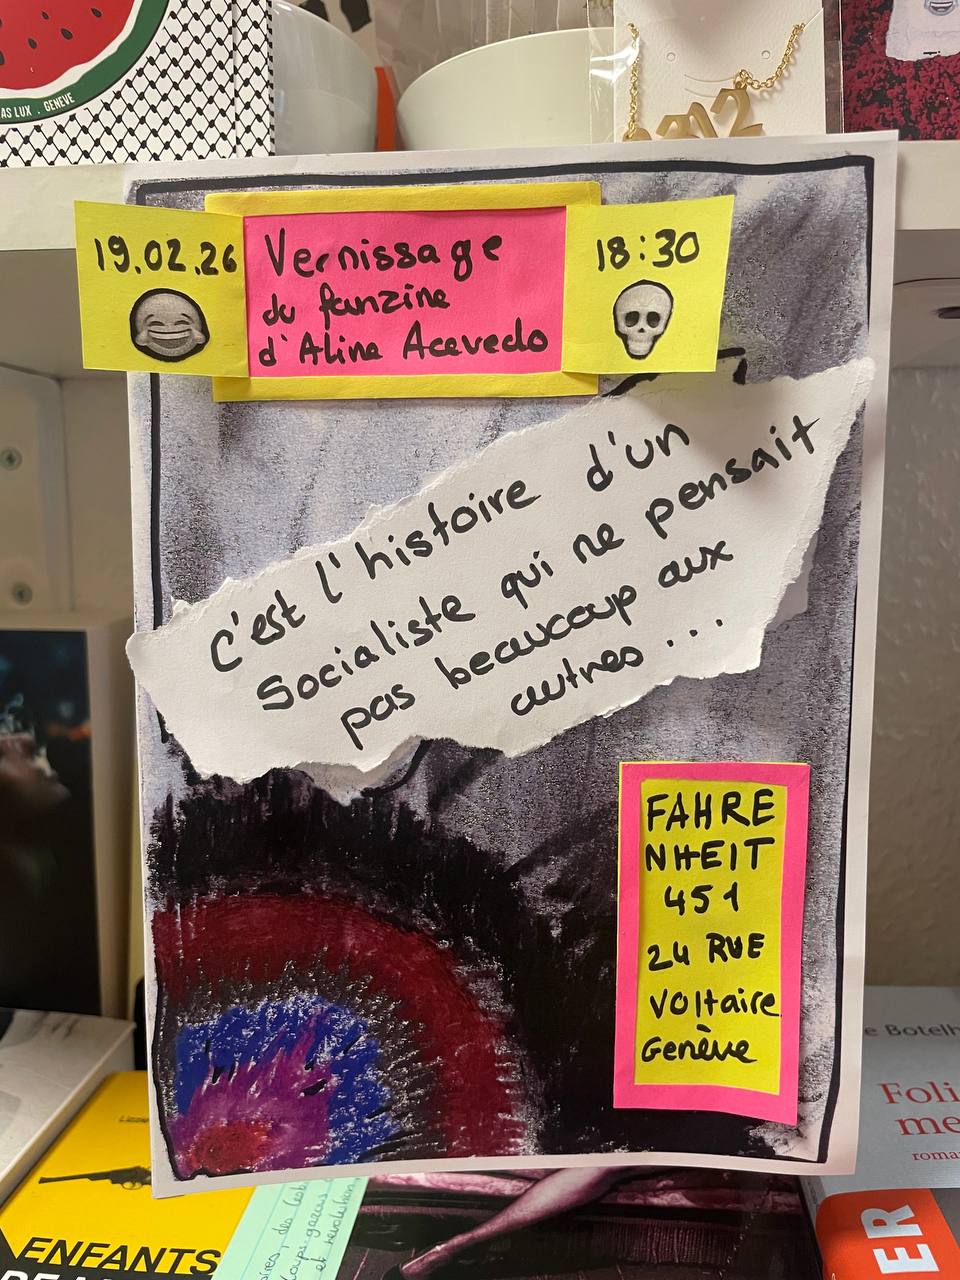 AS LUX . GENEVE
19.02.26
Vernissage
du fanzine
d'Alina Acevedo
18:30
c'est l'histoire d'un
socialiste qui ne pensait
pas beaucoup aux
autres...
FAHRE
NHEIT
451
24 RUE
Voltaire
Genève
e Botelh
Foli
me
roman
ER
ENFANTS